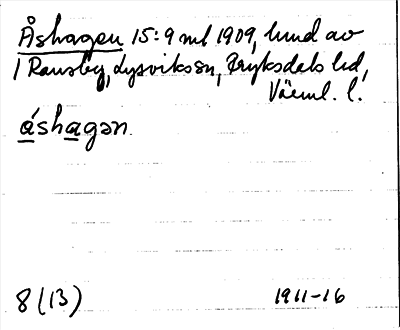 Åshagen 15:9 mtl 1909, lund av
1 Ransby, Lysviks sn, Fryksdals hd,
Värml. l.
åshagən.
8 (13) 1911-16